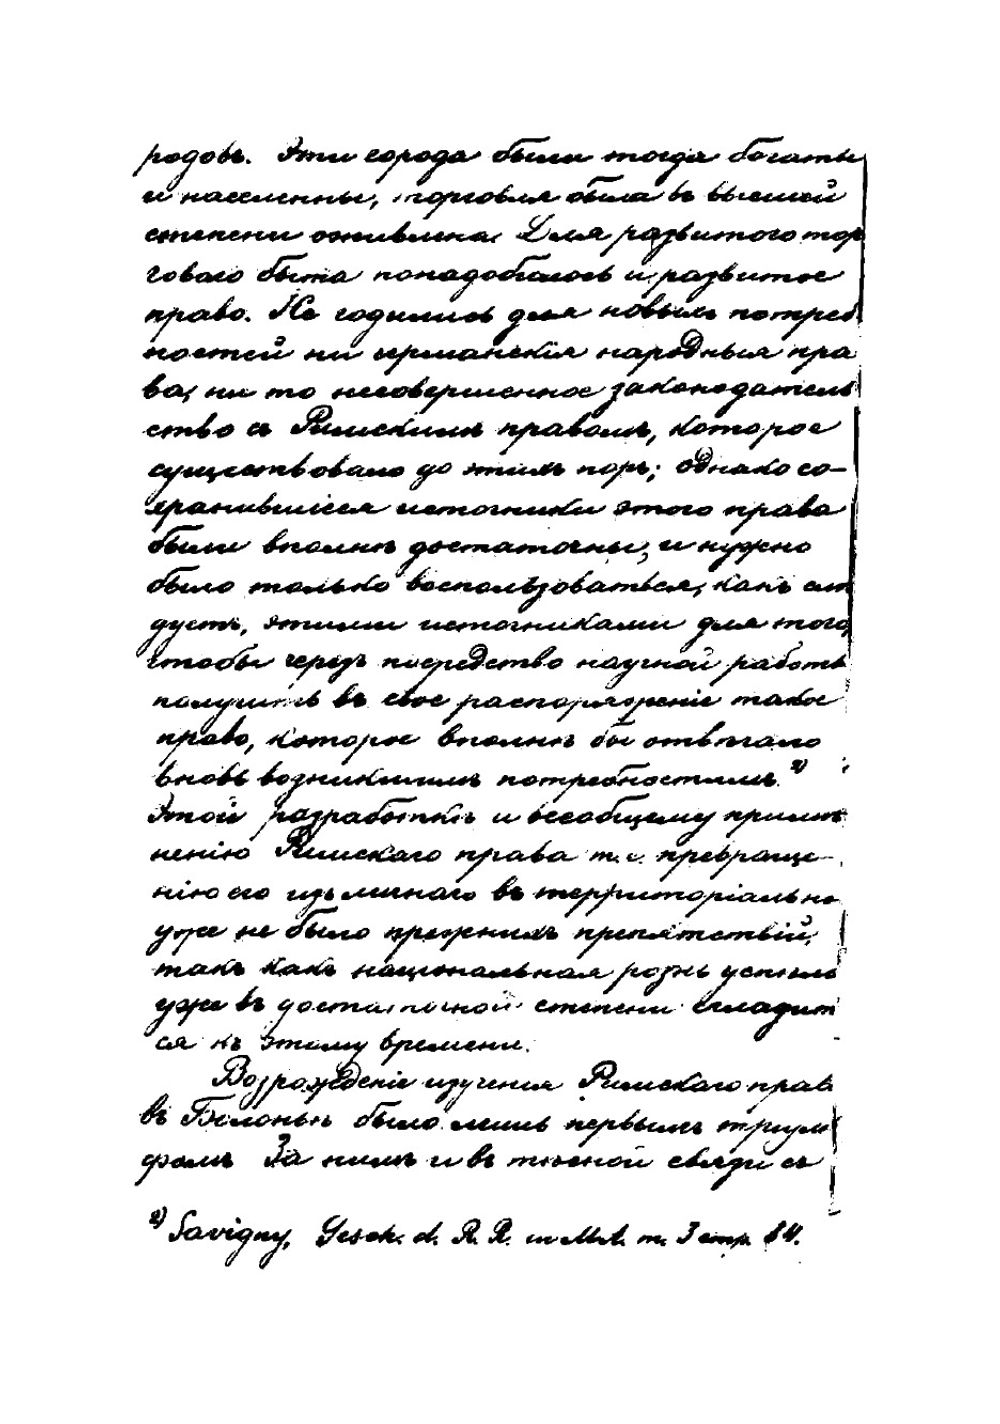 родовъ. Эти города были тогда богаты
и населенны, торговля была въ высшей
степени оживлена. Для развитого тор
говаго быта понадобилось и развитое
право. Не годились для новыхъ потреб
ностей ни германскія народныя пра
ва, ни то несовершенное законодатель
ство съ Римскимъ правомъ, которое
существовало до этихъ поръ; однако со-
хранившіеся источники этого права
были вполнѣ достаточны, и нужно
было только воспользоваться, какъ слѣ
дуетъ, этими источниками для того,
чтобы черезъ посредство научной работы
получить въ свое распоряженіе такое
право, которое вполнѣ бы отвѣчало
вновь возникшимъ потребностямъ. ²)
Этой разработкѣ и всеобщему примѣ
ненію Римскаго права т. е. превраще-
нію его изъ личнаго въ территоріальное
уже не было прежнихъ препятствій,
такъ какъ національная рознь успѣла
уже въ достаточной степени сгладит
ся къ этому времени.
Возрожденіе изученія Римскаго права
въ Болоньѣ было лишь первымъ тріум
фомъ За нимъ и въ тѣсной связи съ
²) Savigny, Gesch. d. R. R. in M.A. т. 3 стр. 84.